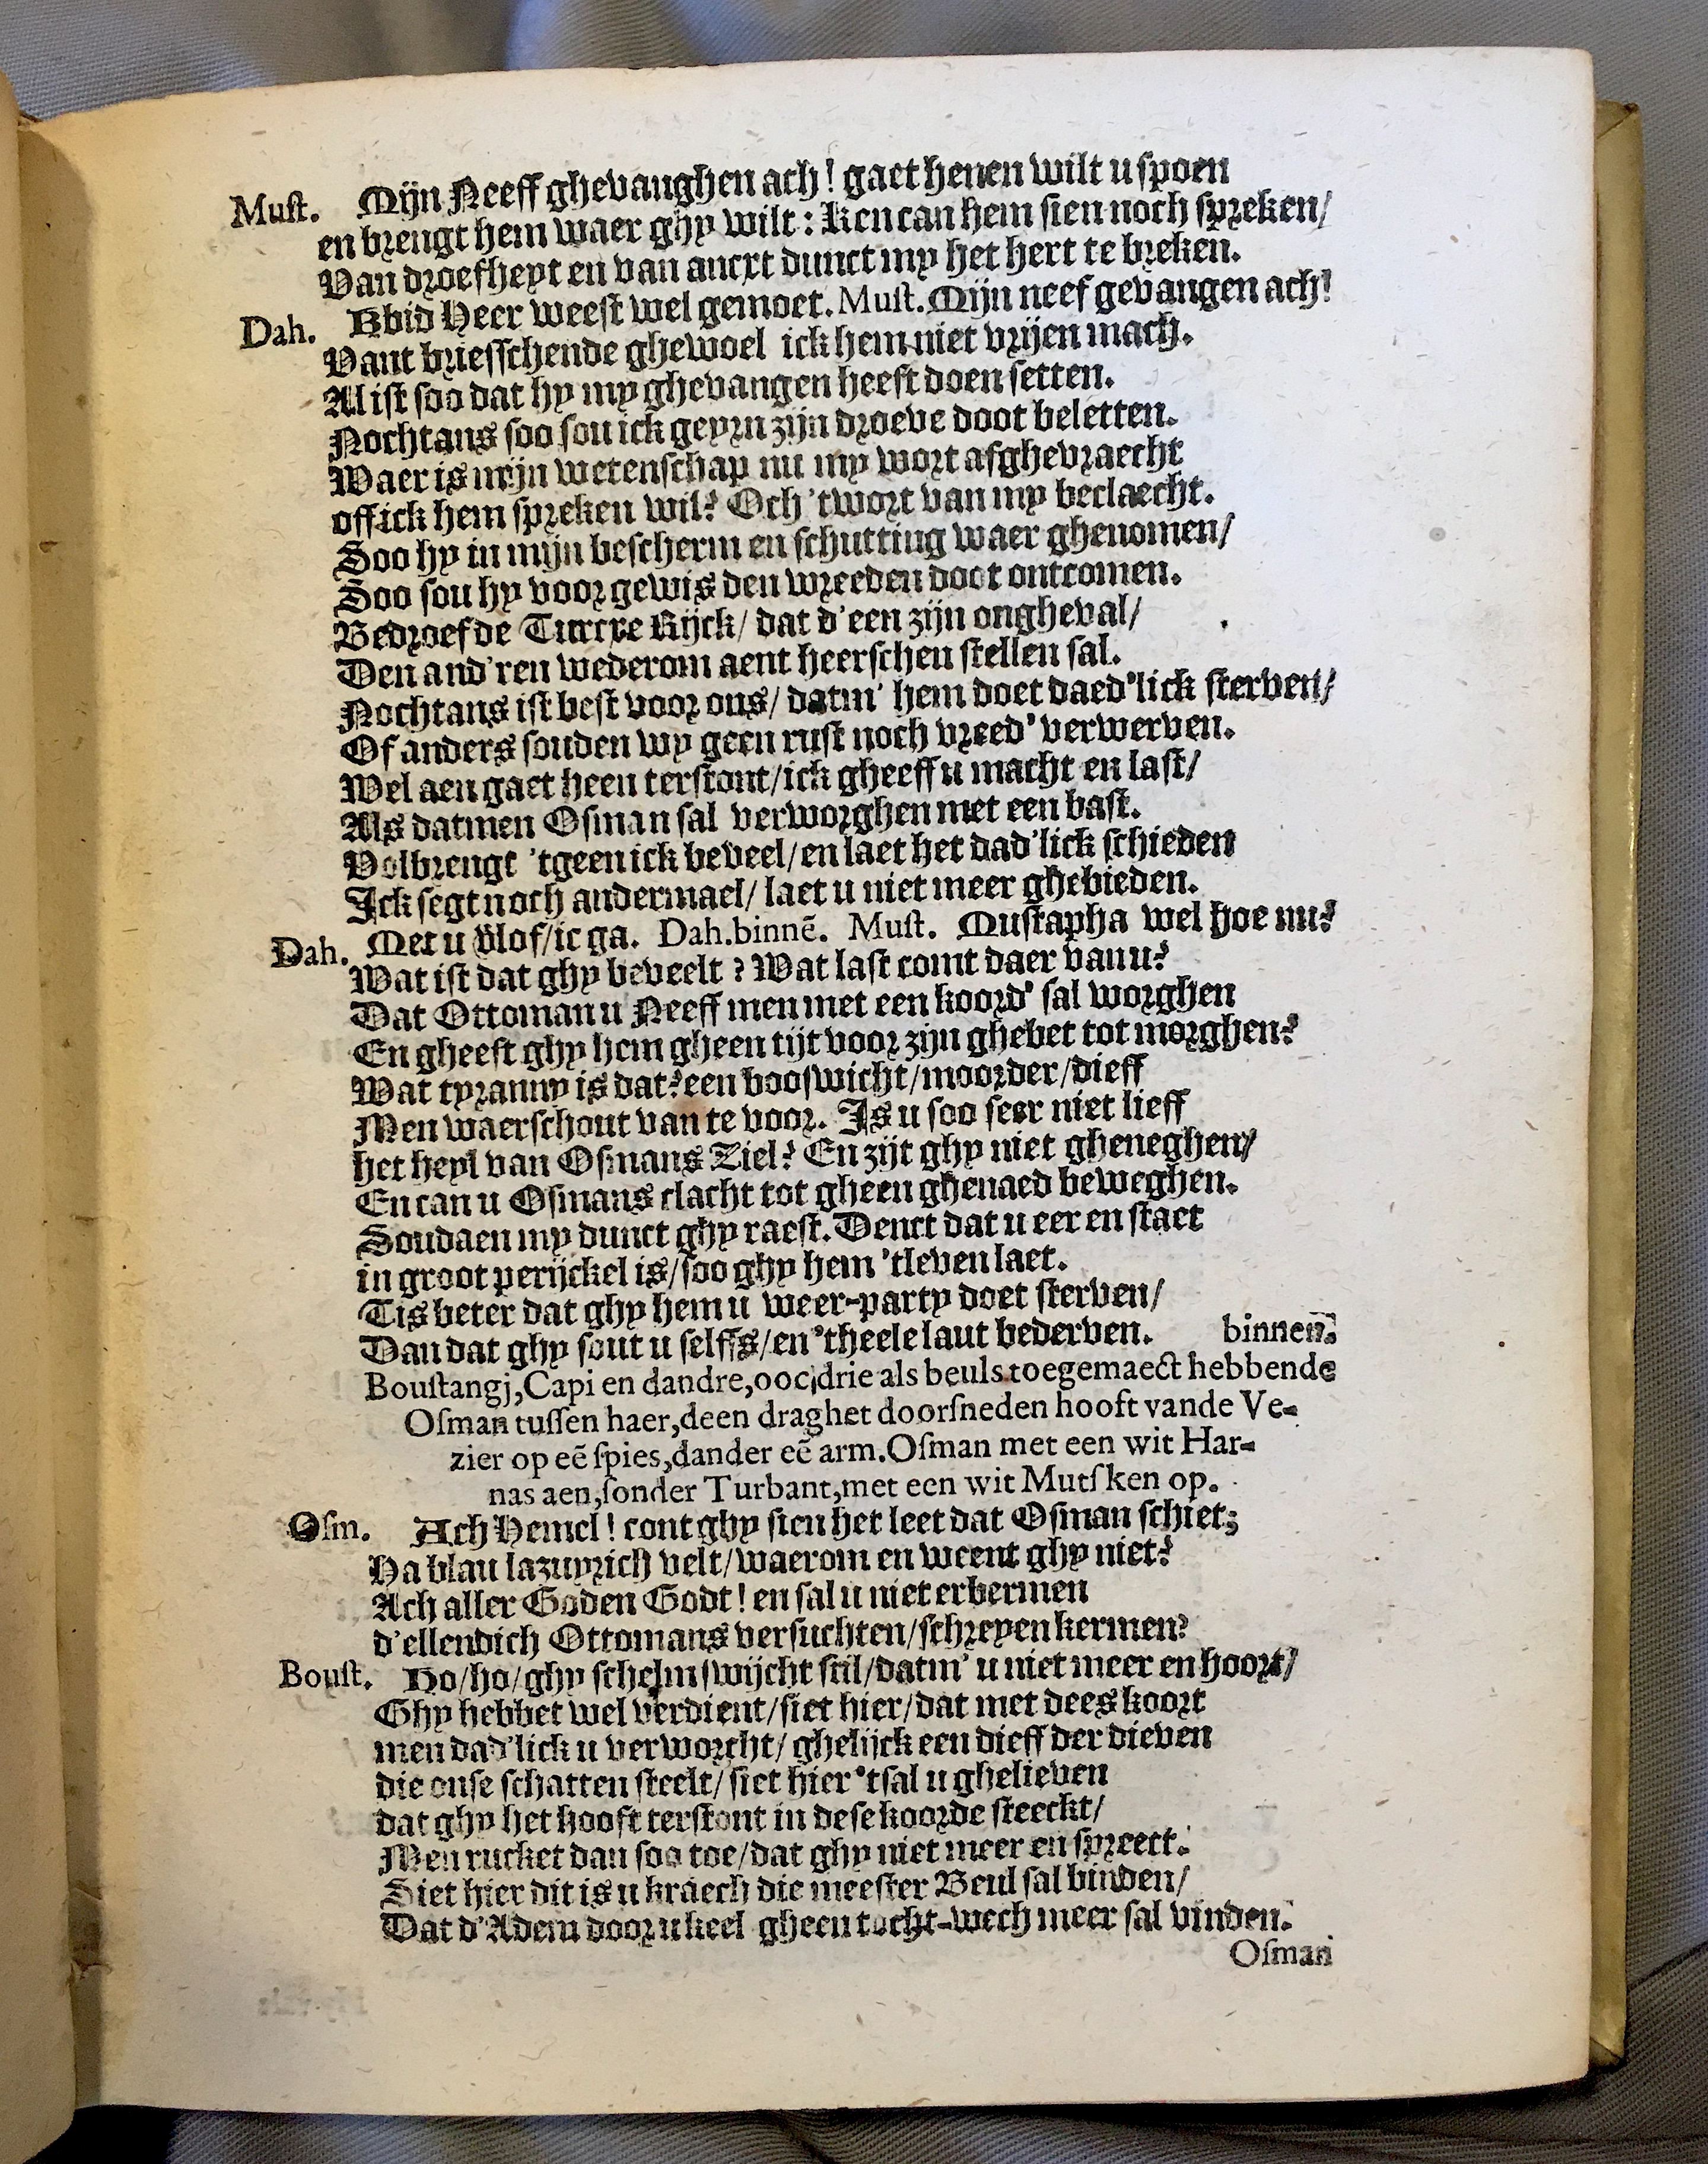 Must. Mijn Neeff ghevanghen ach! gaet henen wilt u spoen
en brengt hem waer ghy wilt: Ken can hem sien noch spreken/
Van droefheyt en van ancxt dunct my het hert te breken.
Dah. Kbid Heer weest wel gemoet. Must. Mijn neef gevangen ach!
Vant briesschende ghewoel ick hem niet vrijen mach.
Al ist soo dat hy my ghevangen heeft doen setten.
Nochtans soo sou ick geyrn zijn droeve doot beletten.
Waer is mijn wetenschap nu my wort afghevraecht
off ick hem spreken wil? Och 'twort van my beclaecht.
Soo hy in mijn bescherm en schutting waer ghenomen/
Soo sou hy voor gewis den wreeden doot ontcomen.
Bedroefde Turcxe Rijck/ dat d'een zijn ongheval/
Den and'ren wederom aent heerschen stellen sal.
Nochtans ist best voor ons/ datm' hem doet daed'lick sterven/
Of anders souden wy geen rust noch vreed' verwerven.
Wel aen gaet heen terstont/ick gheeff u macht en last/
Als datmen Osman sal verworghen met een bast.
Volbrengt 'tgeen ick beveel/en laet het dad'lick schieden
Ick segt noch andermael/ laet u niet meer ghebieden.
Dah. Met u vlof/ic ga. Dah.binnē. Must. Mustapha wel hoe nu?
Wat ist dat ghy beveelt? Wat last comt daer van u?
Dat Ottoman u Neeff men met een koord' sal worghen
En gheeft ghy hem gheen tijt voor zijn ghebet tot morghen?
Wat tyranny is dat? een booswicht/moorder/dieff
Men waerschout van te voor. Is u soo seer niet lieff
het heyl van Osmans Ziel? En zijt ghy niet gheneghen/
En can u Osmans clacht tot gheen ghenaed beweghen.
Soudaen my dunct ghy raest. Denct dat u eer en staet
in groot perijckel is/soo ghy hem 'tleven laet.
Tis beter dat ghy hem u weer-party doet sterven/
Dan dat ghy sout u selffs/en 'theele lant bederven. binnen.
Boustangj,Capi en dandre,ooc drie als beuls toegemaect hebbende
Osman tussen haer,deen draghet doorsneden hooft vande Ve-
zier op eē spies,dander eē arm.Osman met een wit Har-
nas aen,sonder Turbant,met een wit Mutsken op.
Osm. Ach Hemel! cont ghy sien het leet dat Osman schiet;
Ha blau lazuyrich velt/waerom en weent ghy niet?
Ach aller Goden Godt! en sal u niet erbermen
d'ellendich Ottomans versuchten/schreyen kermen?
Boust. Ho/ho/ghy schelm swijcht stil/datm' u niet meer en hoort/
Ghy hebbet wel verdient/siet hier/dat met dees koort
men dad'lick u verworcht/ ghelijck een dieff der dieven
die onse schatten steelt/ siet hier 'tsal u ghelieven
dat ghy het hooft terstont in dese koorde steeckt/
Men rucket dan soo toe/dat ghy niet meer en spreect.
Siet hier dit is u kraech die meester Beul sal binden/
Dat d'Adem door u keel gheen tocht-wech meer sal vinden.
Osman